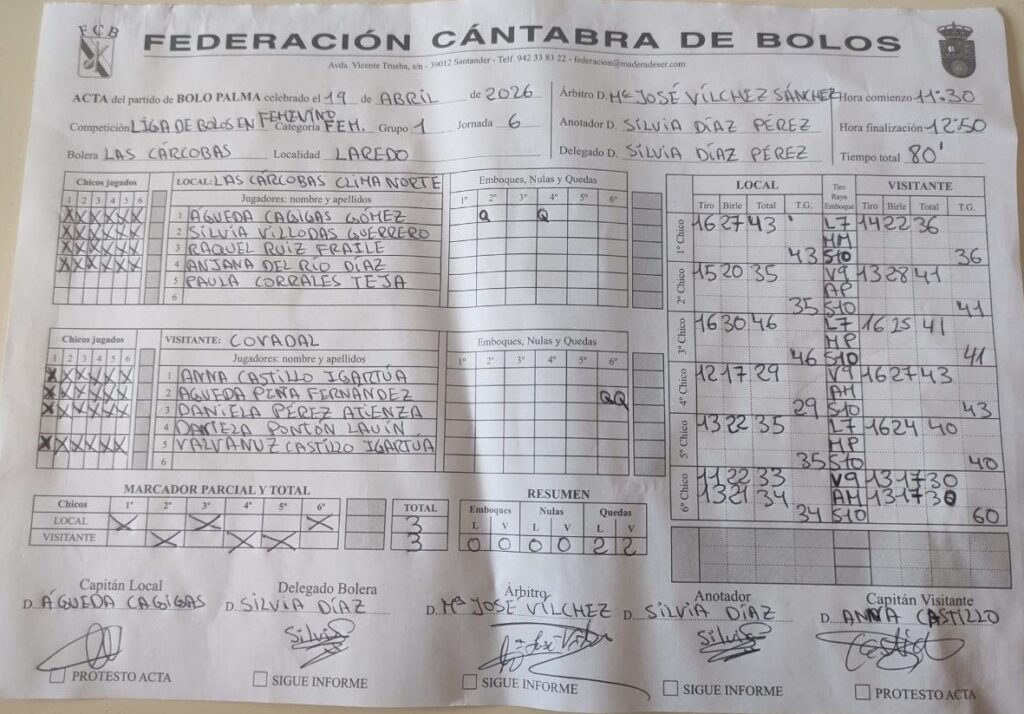 FCB
FEDERACIÓN CÁNTABRA DE BOLOS
Avda. Vicente Trueba, s/n - 39012 Santander - Telf. 942 33 83 22 - federacion@maderadeser.com
ACTA del partido de BOLO PALMA celebrado el 19 de ABRIL de 2026
Competición LIGA DE BOLOS EN FEMENINO Categoría FEM. Grupo 1 Jornada 6
Bolera LAS CÁRCOBAS Localidad LAREDO
Árbitro D. Mª JOSÉ VÍLCHEZ SÁNCHEZ Hora comienzo 11:30
Anotador D. SILVIA DÍAZ PÉREZ Hora finalización 12:50
Delegado D. SILVIA DÍAZ PÉREZ Tiempo total 80'
Chicos jugados LOCAL: LAS CÁRCOBAS CLIMA NORTE Emboques, Nulas y Quedas
1 2 3 4 5 6 Jugadores: nombre y apellidos 1º 2º 3º 4º 5º 6º
X X X X X X 1 ÁGUEDA CAGIGAS GÓMEZ Q Q
X X X X X X 2 SILVIA VILLODAS GUERRERO
X X X X X X 3 RAQUEL RUIZ FRAILE
X X X X X X 4 ANJANA DEL RÍO DÍAZ
5 PAULA CORRALES TEJA
6
Chicos jugados VISITANTE: COVADAL Emboques, Nulas y Quedas
1 2 3 4 5 6 Jugadores: nombre y apellidos 1º 2º 3º 4º 5º 6º
X X X X X X 1 ANNA CASTILLO IGARTÚA
X X X X X X 2 AGUEDA PIÑA FERNÁNDEZ QQ
X X X X X X 3 DANIELA PÉREZ ATIENZA
4 DANIELA PONTÓN LAVÍN
X X X X X X 5 VALVANUZ CASTILLO IGARTÚA
6
LOCAL Tiro Raya Emboque VISITANTE
Tiro Birle Total T.G. Tiro Birle Total T.G.
1º Chico 16 27 43 L7 14 22 36
MM
43 S10 36
2º Chico 15 20 35 V9 13 28 41
AP
35 S10 41
3º Chico 16 30 46 L7 16 25 41
MP
46 S10 41
4º Chico 12 17 29 V9 16 27 43
AM
29 S10 43
5º Chico 13 22 35 L7 16 24 40
MP
35 S10 40
6º Chico 11 22 33 V9 13 17 30
13 21 34 AM 13 17 30
34 S10 60
MARCADOR PARCIAL Y TOTAL
Chicos 1º 2º 3º 4º 5º 6º TOTAL
LOCAL X X X 3
VISITANTE X X X 3
RESUMEN
Emboques Nulas Quedas
L V L V L V
0 0 0 0 2 2
Capitán Local Delegado Bolera Árbitro Anotador Capitán Visitante
D. ÁGUEDA CAGIGAS D. SILVIA DÍAZ D. Mª JOSÉ VÍLCHEZ D. SILVIA DÍAZ D. ANNA CASTILLO
Silvia Silvia
PROTESTO ACTA SIGUE INFORME SIGUE INFORME SIGUE INFORME PROTESTO ACTA